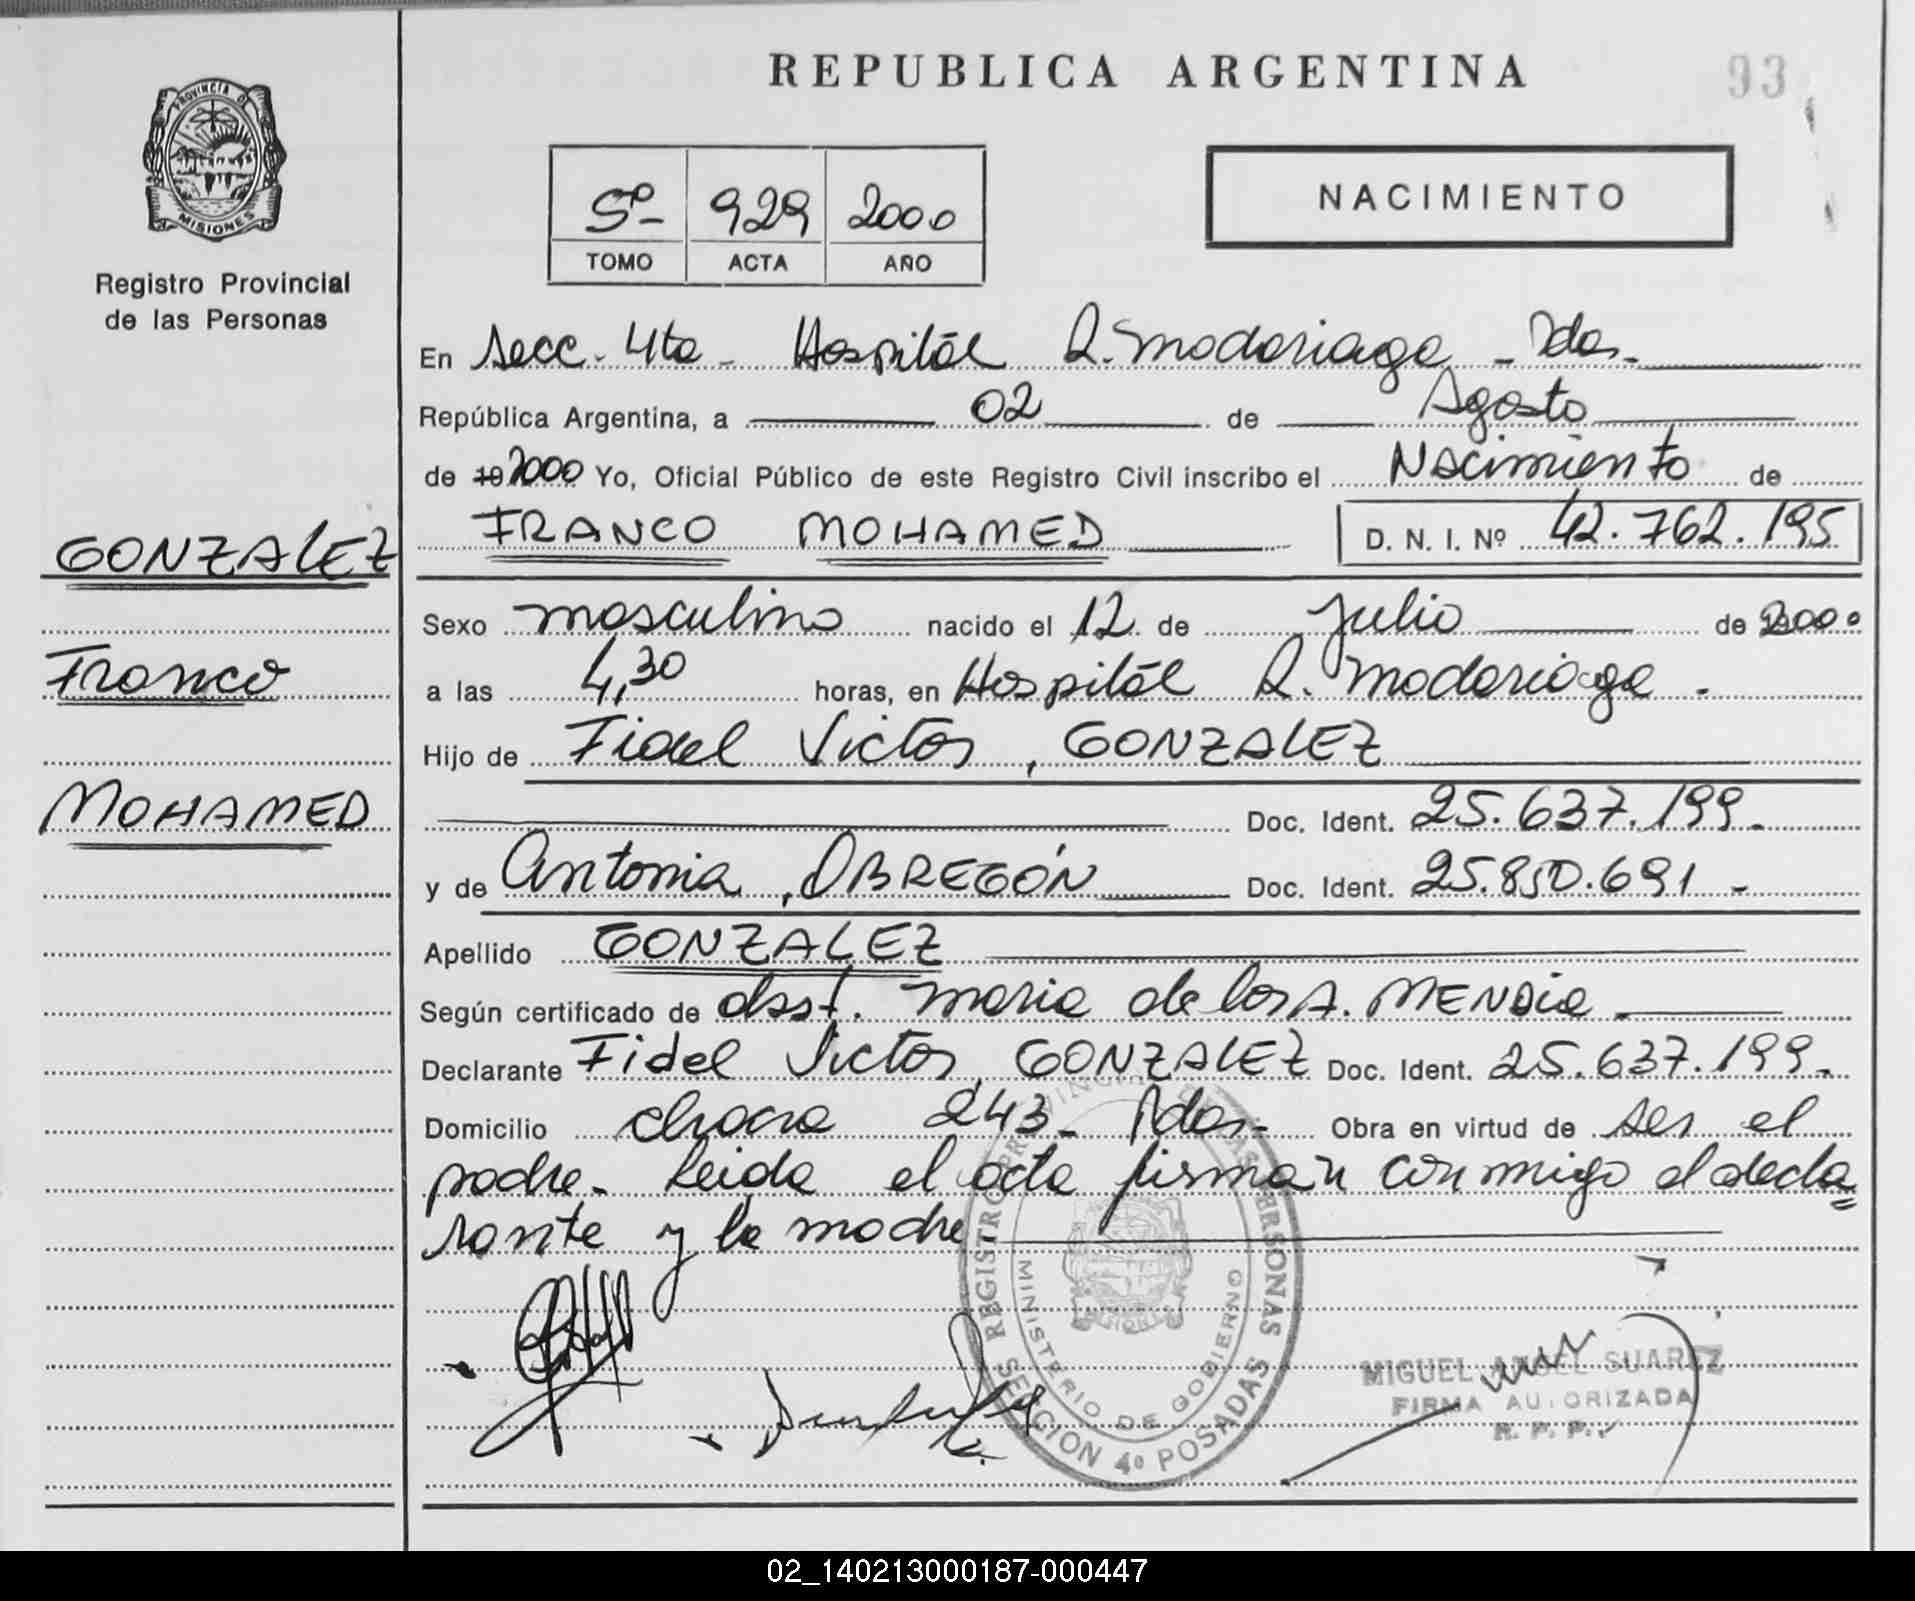 REPUBLICA ARGENTINA
93
PROVINCIA DE
MISIONES
Registro Provincial
de las Personas
5º 929 2000
TOMO ACTA AÑO
NACIMIENTO
En Secc. 4ta - Hospital R. Madariaga - Pdas.
República Argentina, a 02 de Agosto
de 19 2000 Yo, Oficial Público de este Registro Civil inscribo el Nacimiento de
FRANCO MOHAMED D. N. I. Nº 42.762.195
GONZALEZ
Franco
MOHAMED
Sexo masculino nacido el 12 de Julio de 2000
a las 4,30 horas, en Hospital R. Madariaga.
Hijo de Fidel Victor, GONZALEZ
Doc. Ident. 25.637.199.
y de Antonia, OBREGÓN Doc. Ident. 25.850.691 -
Apellido GONZALEZ
Según certificado de obst. Maria de los A. MENDIE.
Declarante Fidel Victor, GONZALEZ Doc. Ident. 25.637.199.
Domicilio chacra 243 - Pdas. Obra en virtud de ser el
padre. Leida el acta firman conmigo el decla=
rante y la madre
REGISTRO PROVINCIAL DE LAS PERSONAS
MINISTERIO DE GOBIERNO
SECCION 4º POSADAS
MIGUEL ANGEL SUAREZ
FIRMA AUTORIZADA
R. P. P.
02_140213000187-000447